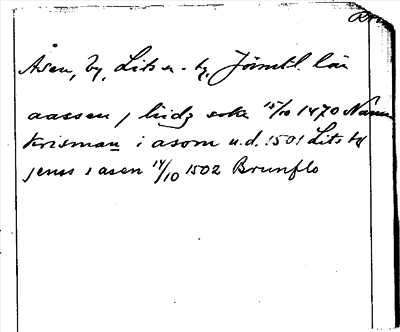 Åsen, by, Lits s. o. tg, Jämtl. län
aassen, liidz sokn 15/10 1470
krisman i asom u.d. 1501 Lits tg
jenss i asen 14/10 1502 Brunflo